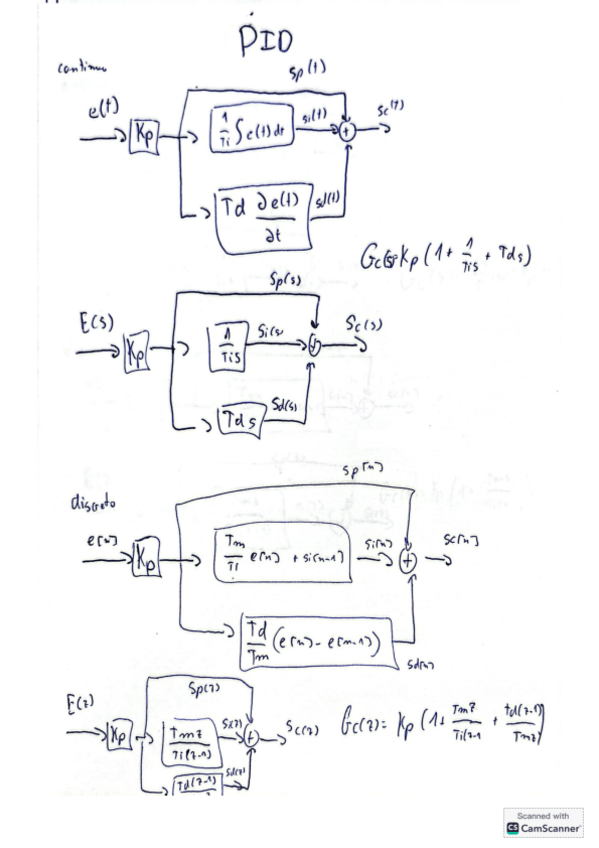 PID
continuo
sp(t)
e(t)
Kp
1/Ti ∫ e(t) dt
si(t)
+
sc(t)
Td ∂e(t)/∂t
sd(t)
Gc(s)=Kp (1 + 1/Tis + Tds)
Sp(s)
E(s)
Kp
1/Tis
Si(s)
+
Sc(s)
Tds
Sd(s)
sp[n]
discreto
e[n]
Kp
Tm/Ti e[n] + si[n-1]
si[n]
+
sc[n]
Td/Tm (e[n] - e[n-1])
sd[n]
Sp(z)
E(z)
Kp
Tmz/Ti(z-1)
Si(z)
+
Sc(z)
Gc(z)= Kp (1 + Tmz/Ti(z-1 + td(z-1)/Tmz)
Td(z-1)
Sd(z)
Scanned with
CS CamScanner